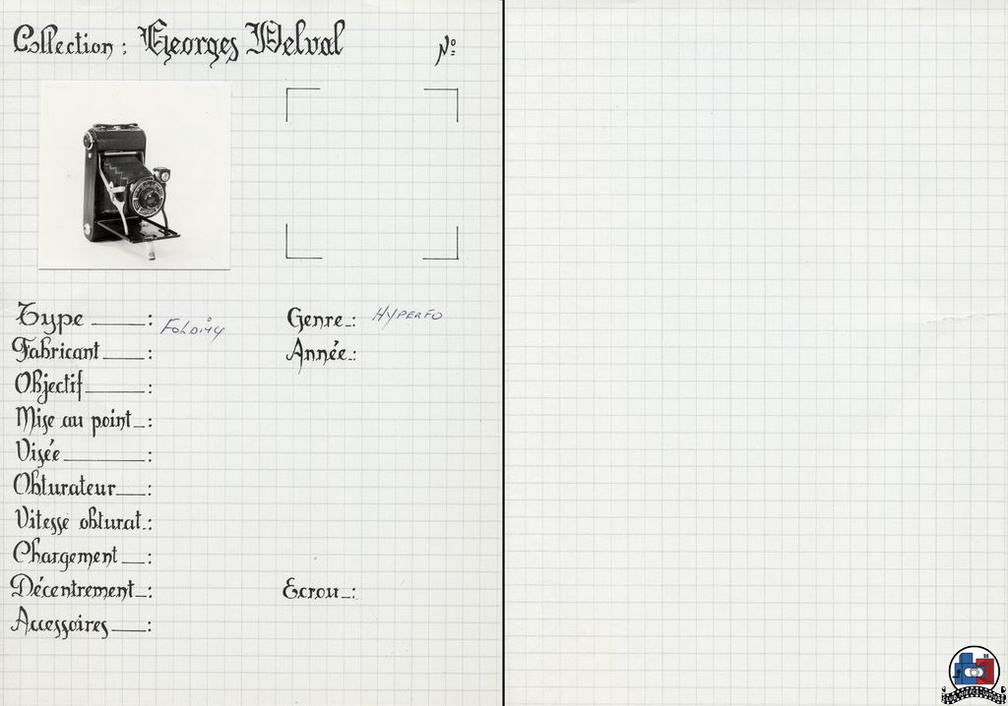 Collection : Georges Delval Nº
Type : Folding Genre : HYPERFO
Fabricant : Année :
Objectif :
Mise au point :
Visée :
Obturateur :
Vitesse obturat. :
Chargement :
Décentrement : Ecrou :
Accessoires :